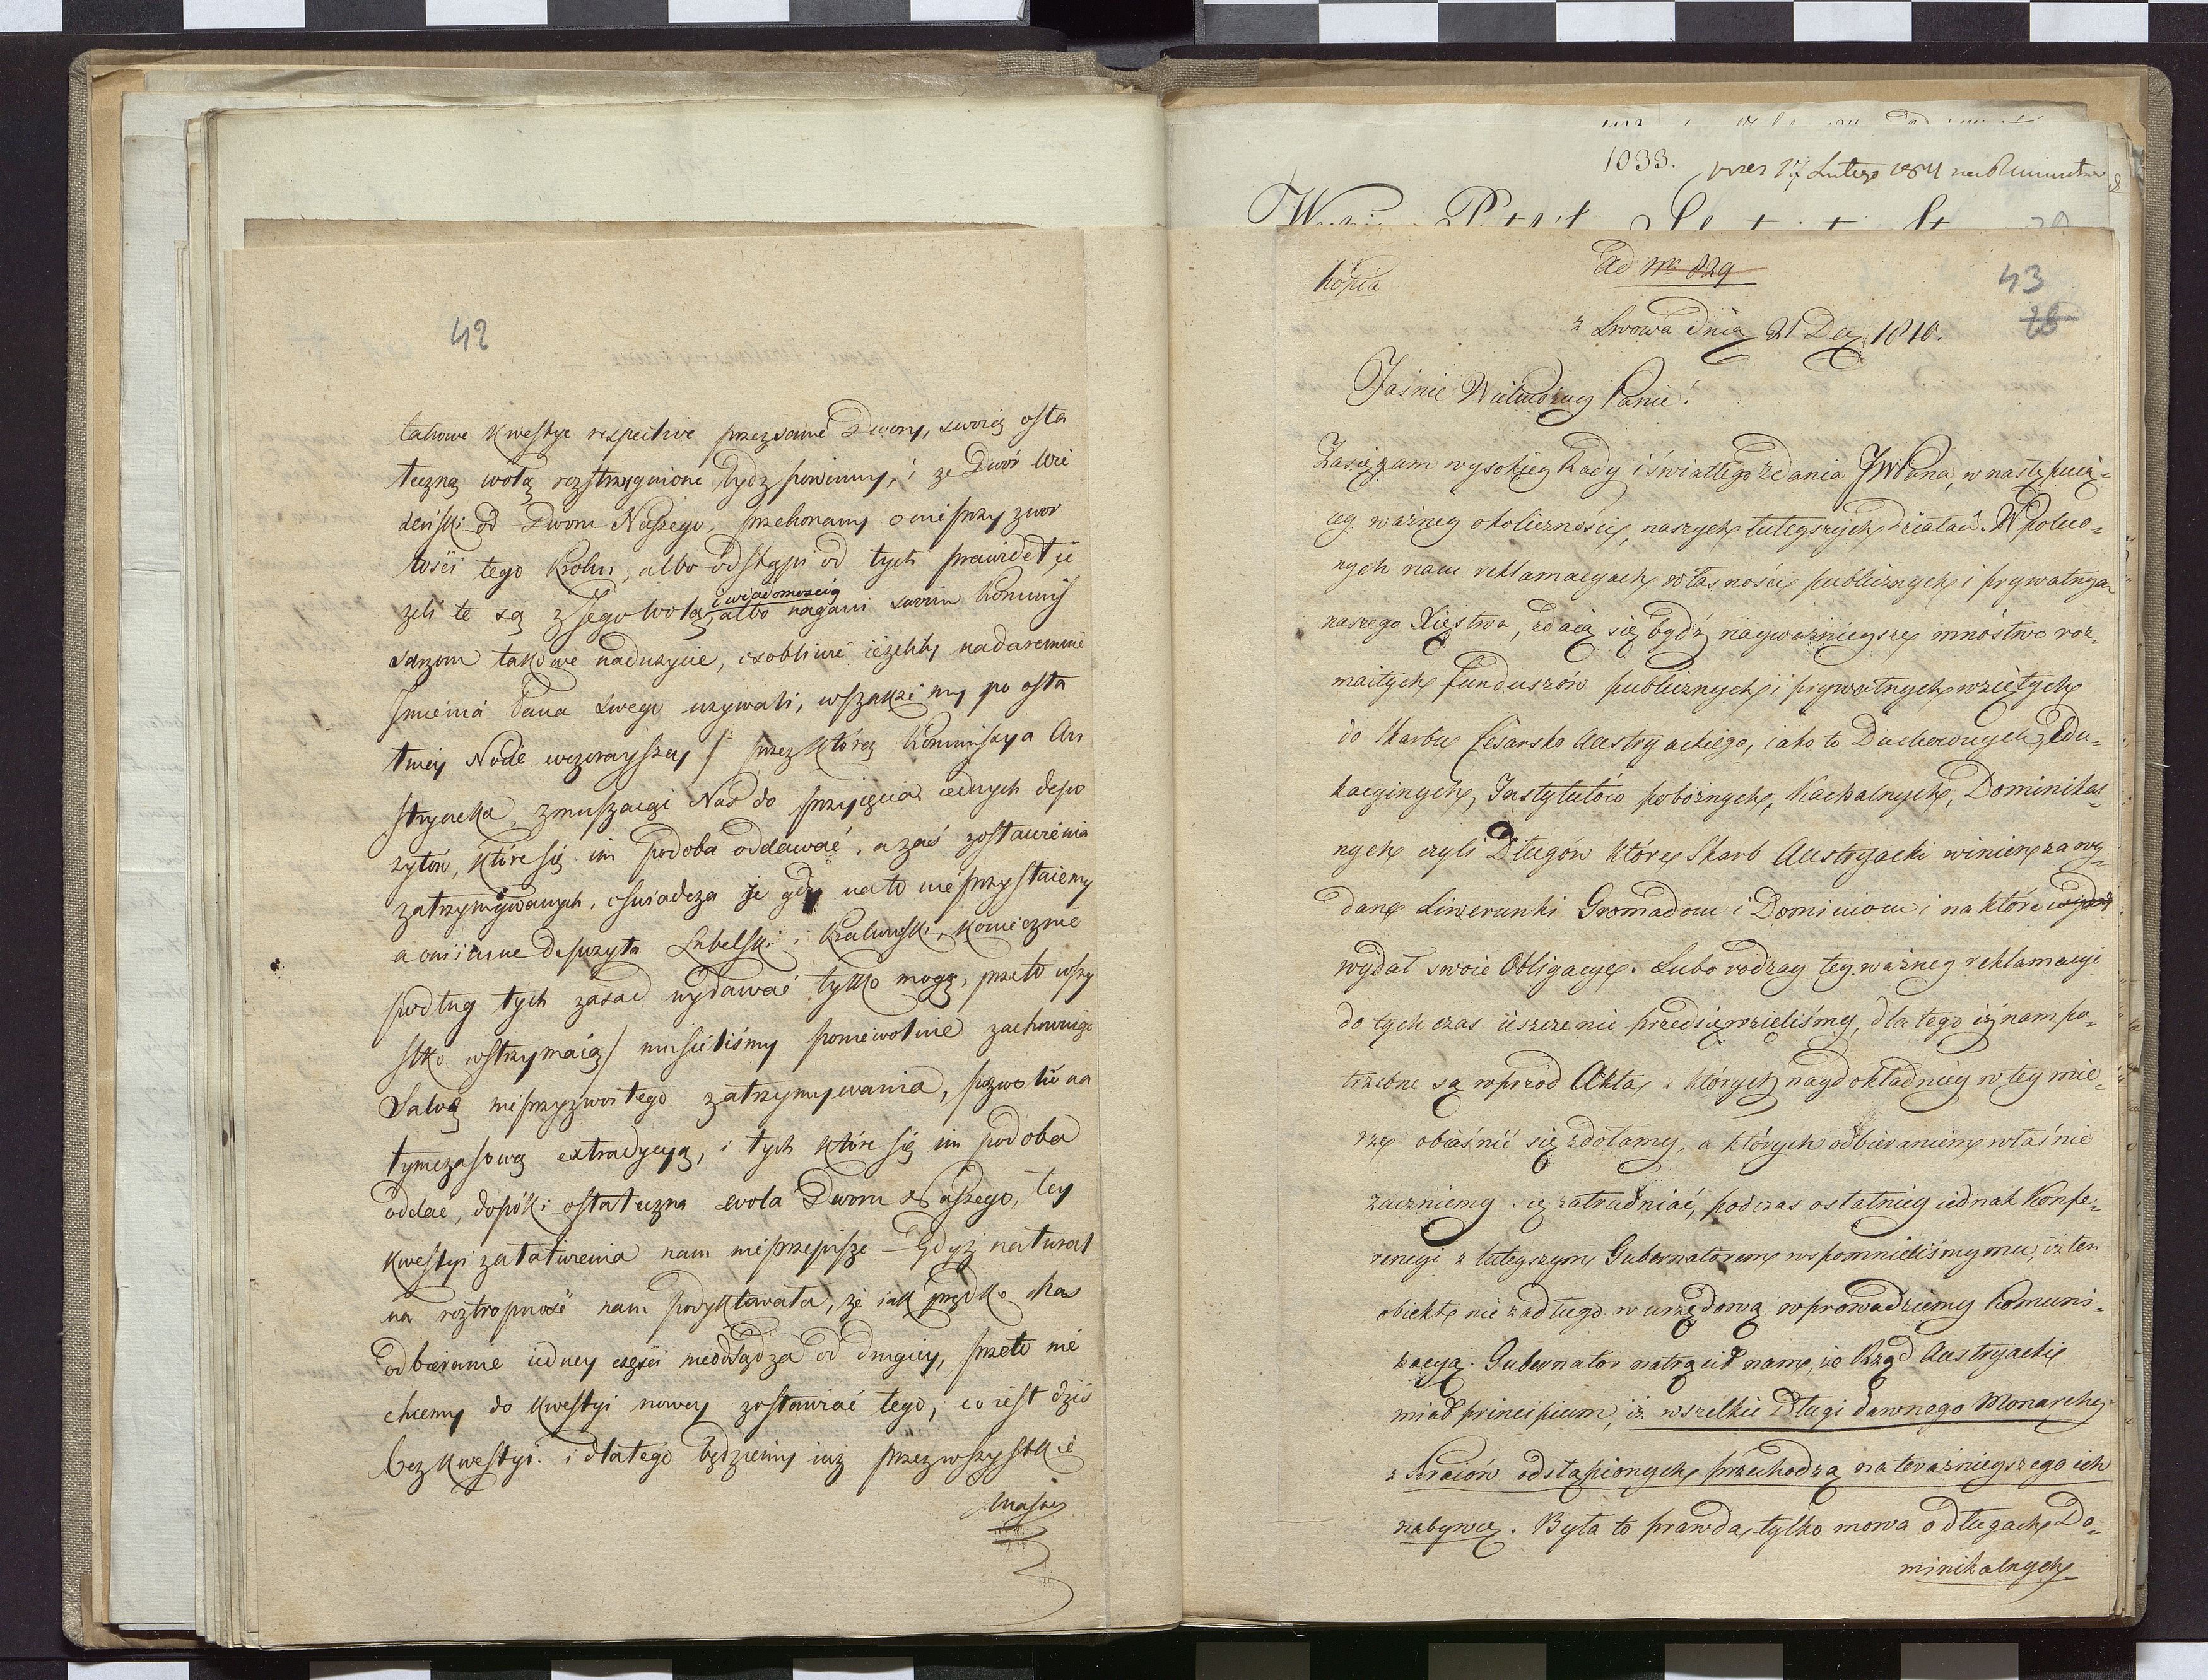 42
takowe kwestye respective przez same Dwory, swoią osta
teczną wolą rozstrzygnione bydz powinny, i ze Dwór Wie
deński od Dworu Naszego, przekonany o nieprzyzwoi
tości tego kroku, albo odstąpi od tych prawideł ie
zeli te są z Jego wolą, albo nagani swoim Kommis
i wiadomością
sarzom takowe naduzycie, osobliwie ieżeliby nadaremnie
Jmienia Pana swego uzywali, wszakze my po osta
tniey Nocie wczorayszey / przez którą Kommissya Au
stryacka, zmuszaiąc Nas do przyięcia iednych depo
zytów, które się im podoba oddawać, a zaś zostawienia
zatrzymywanych, oświadcza że gdy na to nie przystaiemy
a oni inne Depozyta Lubelskie i Krakowskie, koniecznie
podług tych zasad wydawać tylko mogą, przeto wszy
stko wstrzymaią / musieliśmy poniewolnie zachowuiąc
Salvą nieprzyzwoitego zatrzymywania, pozwolić na
tymczasową extradycyą, i tych które się im podoba
oddać, dopóki ostateczna wola Dworu Naszego, tey
kwestyi załatwienia nam nie przepisze – Gdyż natural
na roztropność nam podyktowała, że iak prędko nas
odbieranie iedney części nieodsądza od drugiey, przeto nie
chcemy do kwestyi nowey zostawiać tego, co iest dziś
bez kwestyi. i dlatego będziemy iuż przez wszystkie
1033. przez 17 Lutego
Kopia
Ad No 829
43
28
z Lwowa dnia 21 Dec 1810.
Jaśnie Wielmożny Panie!
Zasięgam wysokiey Rady i światłego zdania JWPana, w następuią-
cey ważney okoliczności, naszych tuteyszych działań. W poleco-
nych nam reklamacyach własności publicznych i prywatnych
naszego Xięstwa, zdaią się bydź nayważnieysze mnóstwo roz-
maitych funduszów publicznych i prywatnych wziętych
do Skarbu Cesarsko Austryackiego, iako to Duchownych, Edu-
kacyinych, Instytutów pobożnych, Kachalnych, Dominikal-
nych czyli Długów które Skarb Austryacki winien za wy-
dane Liwerunki Gromadom i Dominiom i na które
wydał swoie Obligacye. Lubo rodzay tey ważney reklamacyi
do tych czas ieszcze nie przedsięwzieliśmy, dla tego iż nam po-
trzebne są wprzód Akta, z których naydokładniey w tey mie-
rze obiaśnić się zdołamy, a których odbieraniem właśnie
zaczniemy się zatrudniać, podczas ostatniey iednak Konfe-
rencyi z tuteyszym Gubernatorem wspomnieliśmy mu, iż ten
obiekt nie zadługo w urzędową wprowadziemy Komuni-
kacyą. Gubernator natrącił nam, że Rząd Austryacki
miał principium, iż wszelkie Długi dawnego Monarchy
z Kraiów odstąpionych przechodzą na teraźnieyszego ich
nabywcę. Była to prawda, tylko mowa o długach Do-
minikalnych